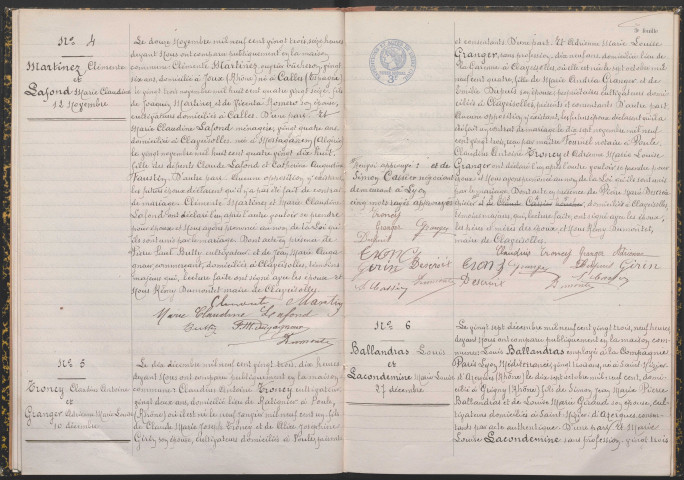 N° 4
Martinez Clémente
et
Lafond Marie Claudine
12 Novembre
Le douze Novembre mil neuf cent vingt trois seize heures
devant Nous ont comparu publiquement en la maison
commune Clémente Martinez ouvrier bûcheron, vingt
six ans, domicilié à Joux (Rhône) né à Calles (Espagne)
le vingt trois novembre mil huit cent quatre vingt seize, fils
de Josevin Martinez et de Vicenta Romero son épouse,
cultivateurs domiciliés à Calles D'une part. Et
Marie Claudine Lafond ménagère, vingt quatre ans
domiciliée à Claveisolles née à Mostaganem (Algérie)
le vingt novembre mil huit cent quatre vingt dix huit
fille des défunts Claude Lafond et Catherine Augustine
D'autre part. Aucune opposition n'existant
les futurs époux déclarent qu'il n'a pas été fait de contrat
de mariage. Clémente Martinez et Marie Claudine
Lafond ont déclaré l'un après l'autre vouloir se prendre
pour époux et Nous avons prononcé au nom de la Loi qu'
ils sont unis par le mariage. Dont acte en présence de
Pierre Paul Butty cultivateur et de Jean Marie
domiciliés à Claveisolles, témoins
majeurs qui, lecture faite ont signé avec les époux et
Nous Rémy Dumontet maire de Claveisolles
Clemente Martinez
Marie Claudine Lafond
Butty
Dumontet
N° 5
Troncy Claudius Antoine
et
Granger Adrienne Marie Louise
10 décembre
Le dix décembre mil neuf cent vingt trois, dix heures
devant Nous ont comparu publiquement en la maison
commune Claudius Antoine Troncy cultivateur
vingt deux ans, domicilié lieu de Ratignier à Poule,
(Rhône) où il est né le neuf mil neuf cent un fils
de Claude Marie Joseph Troncy et de Alice Joséphine
Girin son épouse, cultivateurs domiciliés à Poule présents
et consentants D'une part. Et Adrienne Marie Louise
Granger sans profession, dix neuf ans domiciliée lieu de
à Claveisolles où elle est née le
neuf cent quatre, fille de Marie Andréa Granger et de
Emilie Dupuis son épouse, propriétaires cultivateurs domiciliés
à Claveisolles, présents et consentants D'autre part.
Aucune opposition n'existant, les futurs époux déclarent qu'il a
été fait un contrat de mariage le dix sept novembre mil neuf
cent vingt trois, reçu par maître Fournel notaire à Poule.
Claudius Antoine Troncy et Adrienne Marie Louise
Granger ont déclaré l'un après l'autre vouloir se prendre pour
époux et Nous avons prononcé au nom de la Loi qu'ils sont unis
par le mariage. Dont acte en présence de
domiciliés à Claveisolles,
témoins majeurs, qui, lecture faite, ont signé avec les époux,
les pères et mères des époux et Nous Rémy Dumontet,
maire de Claveisolles.
Renvoi approuvé : et de
Simon Cartier négociant
demeurant à Lyon
cinq mots rayés approuvés
Troncy
Granger
Dumont
Troncy
Girin
Descroix
Claudius Troncy Granger Adrienne
Troncy Granger
Girin
Descroix
Dumontet
N° 6
Ballandras Louis
et
Lacondemine Marie Louise
27 décembre
Le vingt sept décembre mil neuf cent vingt trois, neuf heures
devant Nous ont comparu publiquement en la maison com
mune Louis Ballandras employé à la Compagnie
Paris Lyon Méditerranée, vingt trois ans, né à Saint Nizier
d'Azergues (Rhône) le dix sept octobre neuf cent, domi
cilié à Grigny (Rhône) fils de Simon Jean Marie Pierre
Ballandras et de Louise Marie Giraud son épouse, cul
tivateurs domiciliés à Saint Nizier d'Azergues consen
tants par acte authentique. D'une part. Et Marie
Louise Lacondemine sans profession, vingt trois